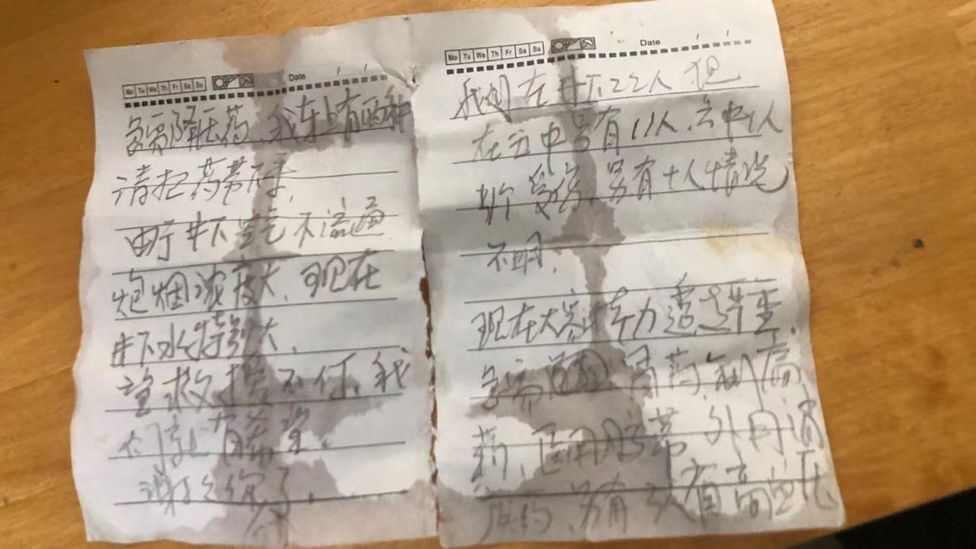 Mo Tu We Th Fr Sa Su Date
急需降压药，我车上有两种
请把药带来，
由于井下空气不流通
炮烟浓度大，现在
井下水特别大，
望救援不停，我
们就有希望，
谢谢你们了，
Mo Tu We Th Fr Sa Su Date
我们在井下22人 但
在五中另有11人，六中1人
受伤，另有十人情况
不明，
现在大家体力透支严重，
急需 胃药，止痛
药，医用胶带，外用消
炎药，另有 人有高血压